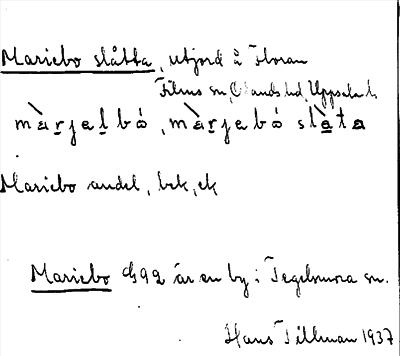 Mariebo slåtta, utjord å Floran
Films sn, Olands hd, Uppsala l.
màrjel bó, màrjebó slata
Mariebo andel, bek, ek
Mariebo G92 är en by i Tegelsmora sn.
Hans Tillman 1937